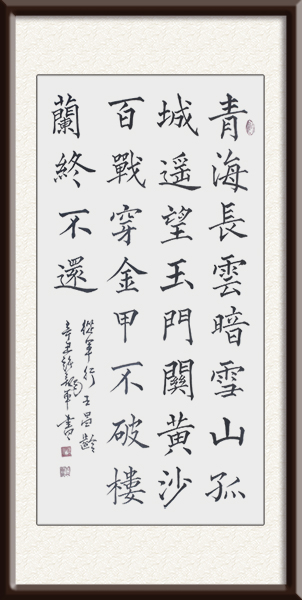 青海長雲暗雪山孤
城遥望玉門關黄沙
百戰穿金甲不破樓
蘭終不還
從軍行王昌齡
辛丑
書